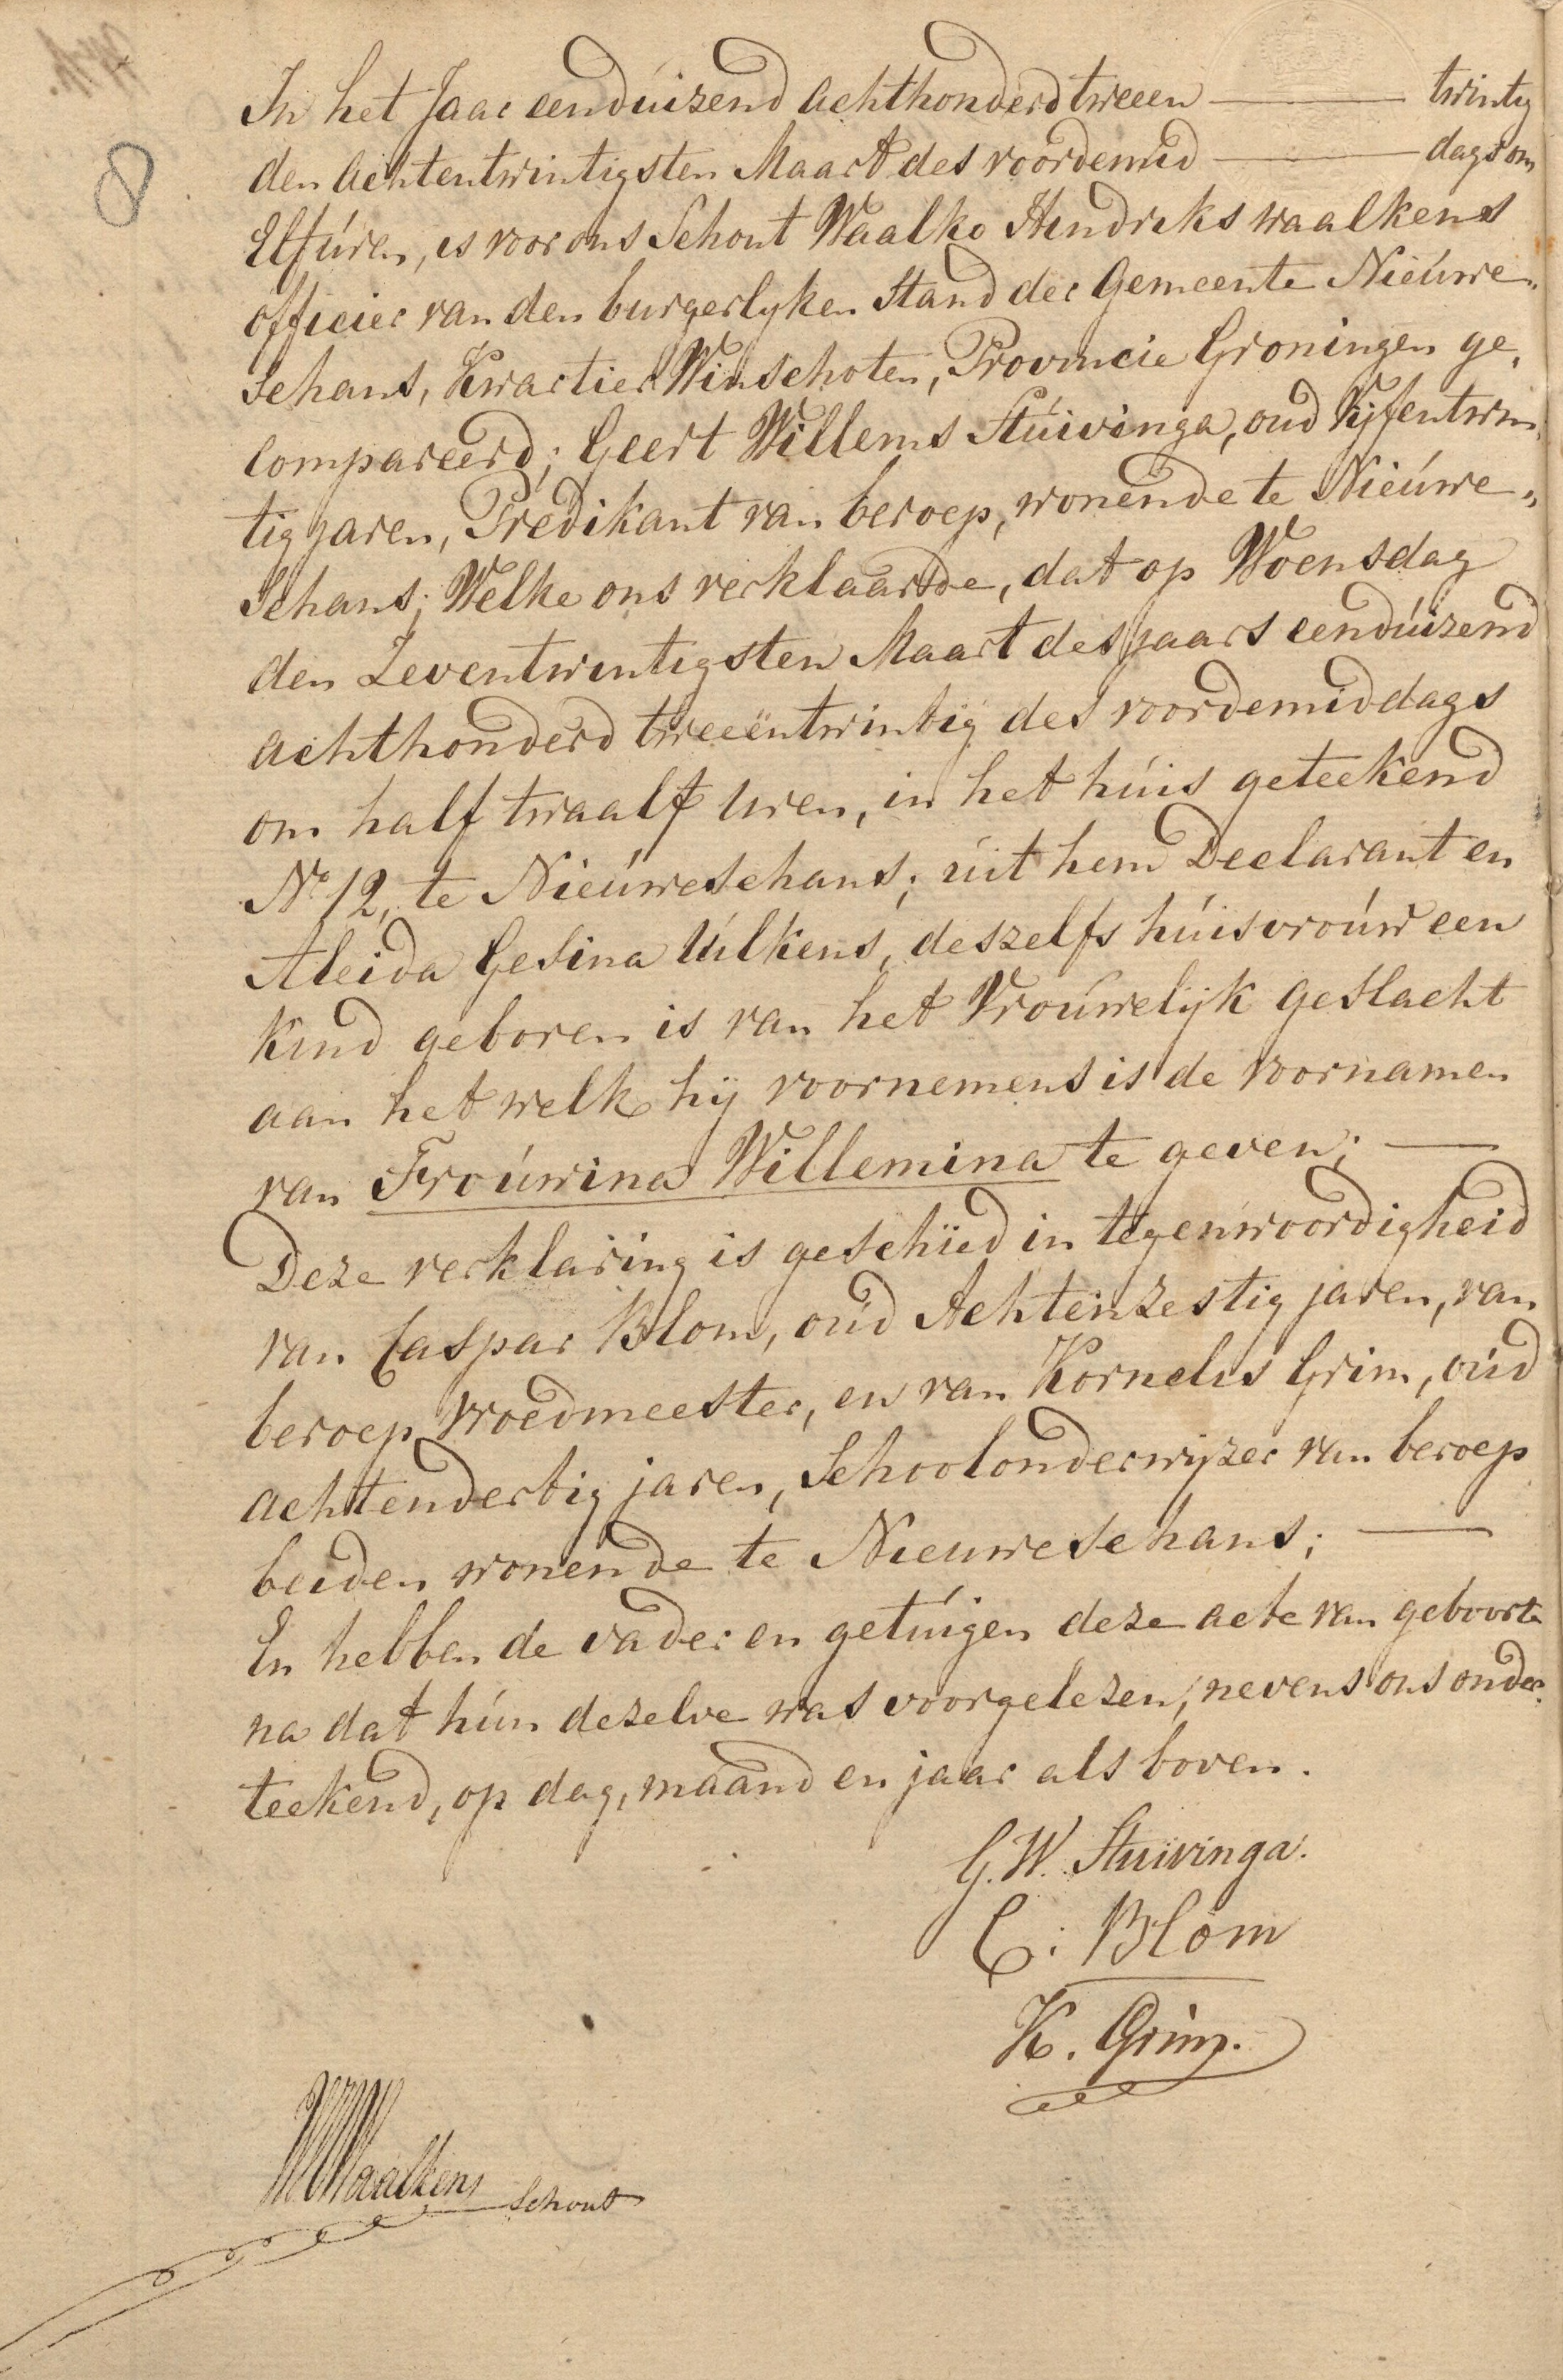 8
In het Jaar eenduizend achthonderd tweeen —— twintig
den achtentwintigsten Maart des voordemid —— dags om
Elf úren, is voor ons Schout Waalko Hindriks Waalkens
officier van den burgerlyken Stand der Gemeente Nieúwe„
Schans, Kwartier Winschoten, Provincie Groningen ge„
compareerd; Geert Willems Stúivinga, oud Vijfentwin„
tig jaren, Predikant van beroep, wonende te Nieúwe„
Schans; Welke ons verklaarde, dat op Woensdag
den Zeventwintigsten Maart des jaars eendúizend
achthonderd tweeëntwintig des voordemiddags
om half twaalf Uren, in het húis geteekend
No 12, te Nieúweschans; úit hem Declarant en
Aleida Gesina Úilkens, deszelfs húisvroúw een
Kind geboren is van het Vroúwelijk geslacht
aan het welk hij voornemens is de voornamen
van Froúwina Willemina te geven; ——
Deze verklaring is geschied in tegenwoordigheid
van Caspar Blom, oúd Achtenzestig jaren, van
beroep Vroedmeester, en van Kornelis Grim, oúd
achtendertig jaren, Schoolonderwijzer van beroep
beiden wonende te Nieuweschans; ——
En hebben de vader en getúigen deze acte van geboorte
na dat hún dezelve was voorgelezen, nevens ons onder„
teekend, op dag, maand en jaar als boven.
G. W. Stuivinga.
C: Blom
K. Grim.
WHWaalkens Schout